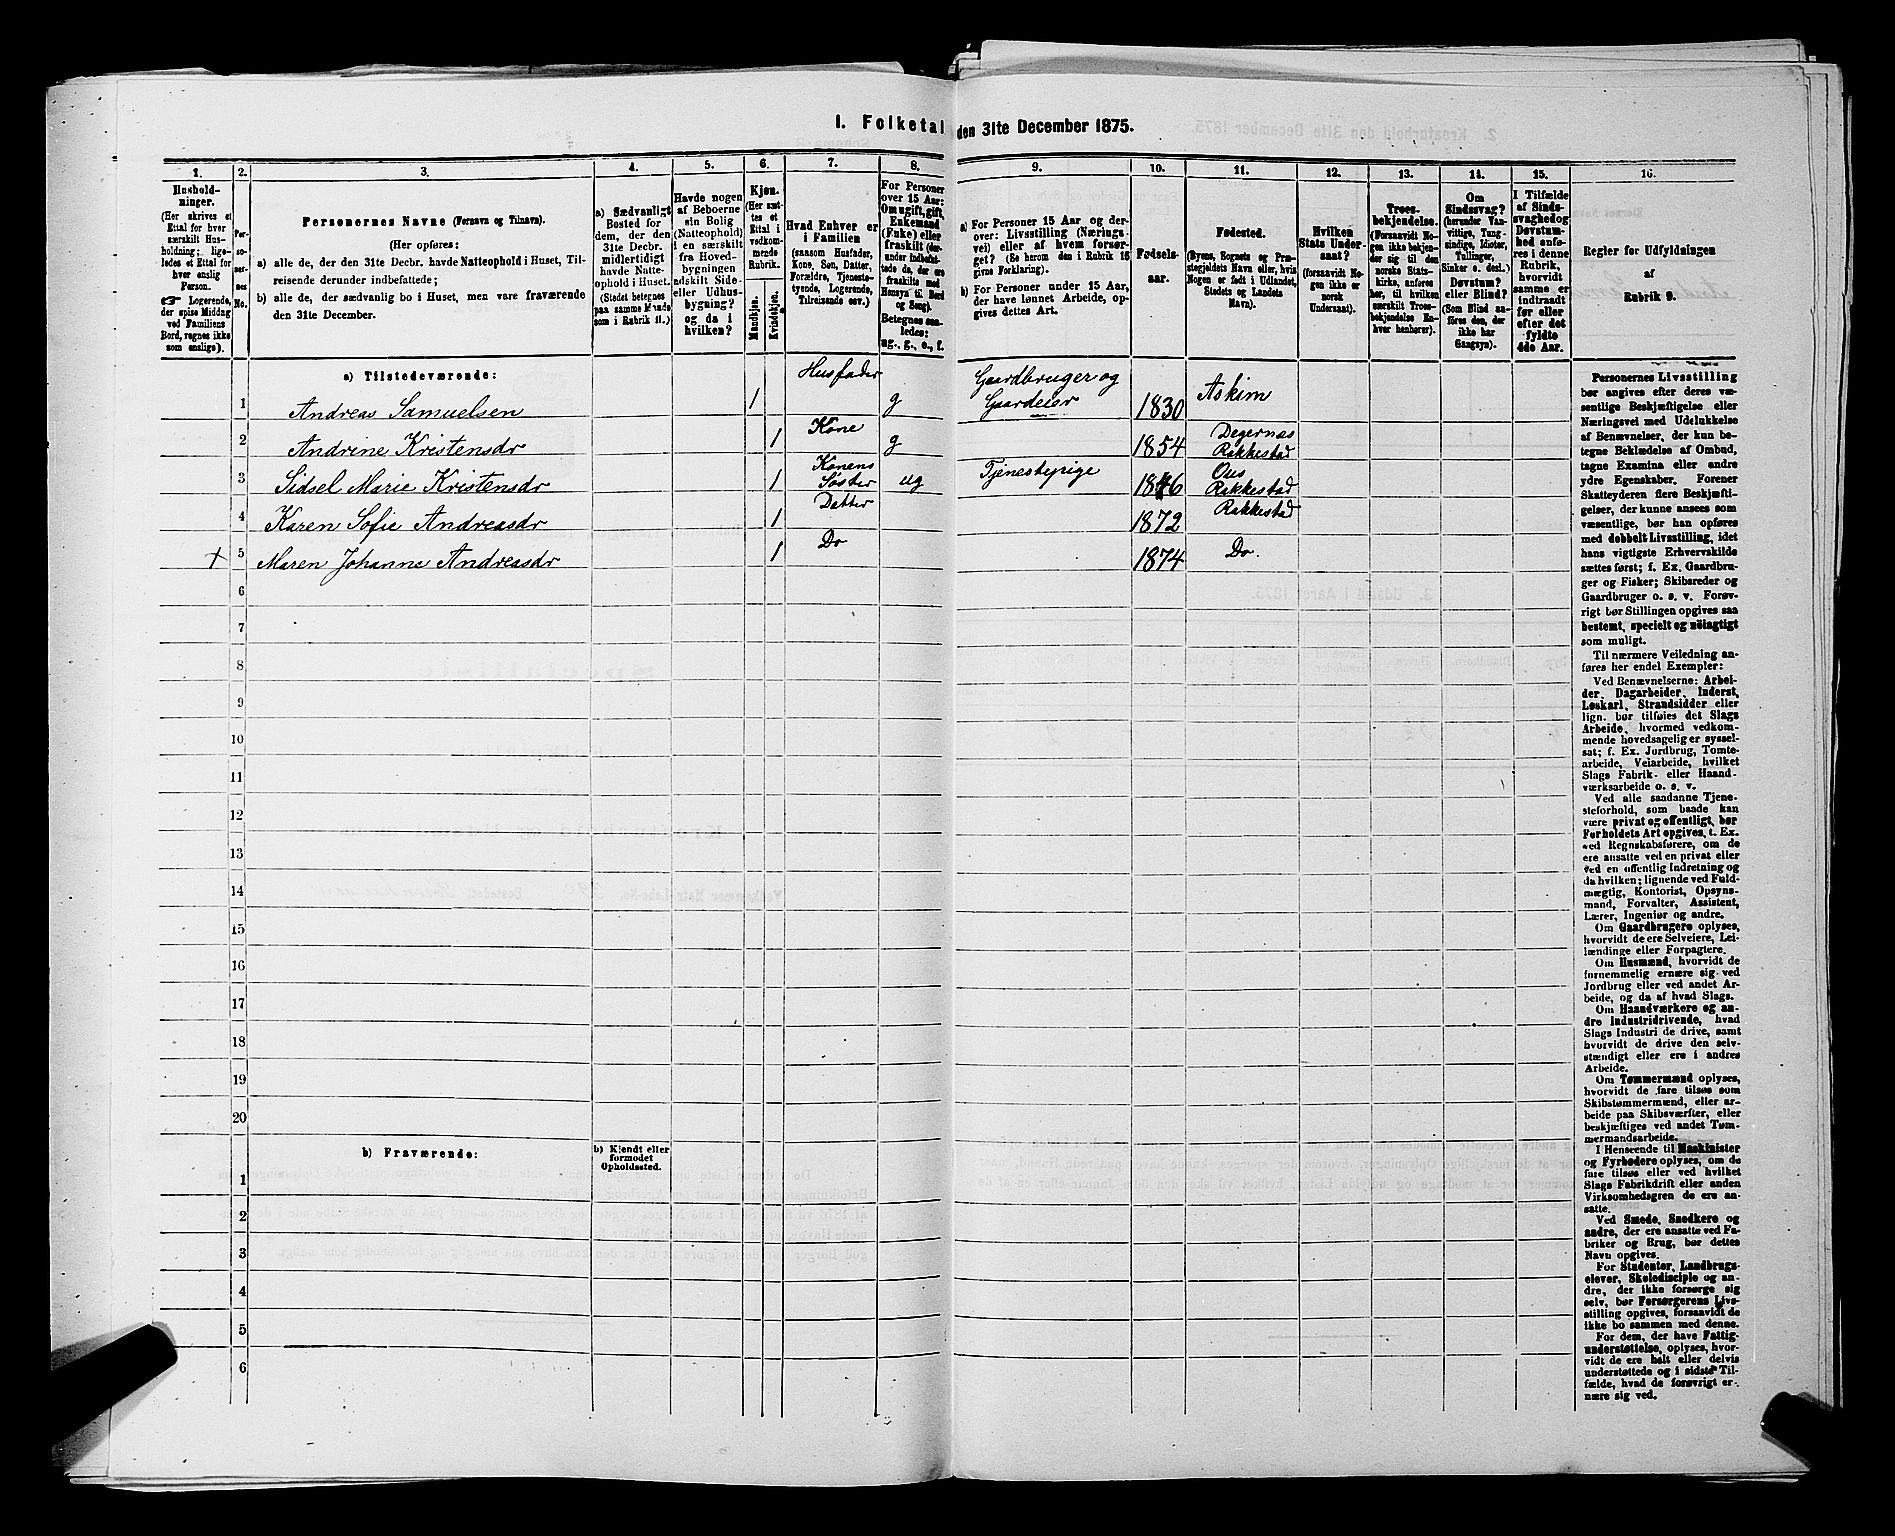 I. Folketal den 31te December 1875.
1. 2. 3. 4. 5. 6. 7. 8. 9. 10. 11. 12. 13. 14. 15. 16.
Hushold-
ninger.
(Her skrives et
Ettal for hver
særskilt Hus-
holdning; lige-
ledes et Ettal for
hver enslig
Person.
☞ Logerende,
der spise Middag
ved Familiens
Bord, regnes ikke
som enslige).
Per-
so-
ner-
nes
No.
Personernes Navne (Fornavn og Tilnavn).
(Her opføres:
a) alle de, der den 31te Decbr. havde Natteophold i Huset, Til-
reisende derunder indbefattede;
b) alle de, der sædvanlig bo i Huset, men vare fraværende
den 31te December.
a) Sædvanligt
Bosted for
dem, der den
31te Decbr.
midlertidigt
havde Natte-
ophold i Huset.
(Stedet betegnes
paa samme Maade
som i Rubrik 11.)
Havde nogen
af Beboerne
sin Bolig
(Natteophold)
i en særskilt
fra Hoved-
bygningen
adskilt Side-
eller Udhus-
bygning?
og da i
hvilken?
Kjøn.
(Her sæt-
tes et
Ettal i
vedkom-
mende
Rubrik.
Mandkjøn.
Kvindekjøn.
Hvad Enhver er
i Familien
(saasom Husfader,
Kone, Søn, Datter,
Forældre, Tjeneste-
tyende, Logerende,
Tilreisende osv.)
For Personer
over 15 Aar:
Om ugift, gift,
Enkemand
(Enke) eller
fraskilt (der-
under indbefat-
tede de, der ere
fraskilte med
Hensyn til Bord
og Seng).
Betegnes saa-
ledes:
ug., g., e., f.
a) For Personer 15 Aar og der-
over: Livsstilling (Nærings-
vei) eller af hvem forsør-
get? (Se herom den i Rubrik 16
givne Forklaring).
b) For Personer under 15 Aar,
der have lønnet Arbeide, op-
gives dettes Art.
Fødsels-
aar.
Fødested.
(Byens, Sognets og Præ-
stegjeldets Navn eller, hvis
Nogen er født i Udlandet,
Stedets og Landets
Navn).
Hvilken
Stats Under-
saat?
(forsaavidt No-
gen ikke er
norsk
Undersaat).
Troes-
bekjendelse.
(Forsaavidt No-
gen ikke bekjen-
der sig til den
norske Stats-
kirke, anføres
her, til hvilken
særskilt Troes-
bekjendelse En-
hver henhører).
Om
Sindssvag?
(herunder Van-
vittige, Tung-
sindige, Idioter,
Tullinger,
Sinker o. desl.)
Døvstum?
eller Blind?
(Som Blind an-
føres den, der
ikke har
Gangsyn).
I Tilfælde
af Sinds-
svaghed og
Døvstum-
hed anfø-
res i denne
Rubrik,
hvorvidt
samme er
indtraadt
før eller
efter det
fyldte
4de Aar.
Regler for Udfyldningen
af
Rubrik 9.
a) Tilstedeværende:
1 Andreas Samuelsen 1 Husfader g Gaardbruger og Gaardeier 1830 Askim
2 Andrine Kristensdr 1 Kone g 1854 Degernæs Rakkestad
3 Sidsel Marie Kristensdr 1 Konens Søster ug Tjenestepige 1846 Ous Rakkestad
4 Karen Sofie Andreasdr 1 Datter 1872 Rakkestad
+ 5 Maren Johanne Andreasdr 1 Do 1874 Do.
6
7
8
9
10
11
12
13
14
15
16
17
18
19
20
b) Fraværende:
b) Kjendt eller
formodet
Opholdssted.
1
2
3
4
5
6
Personernes Livsstilling
bør angives efter deres væ-
sentlige Beskjæftigelse eller
Næringsvei med Udelukkelse
af Benævnelser, der kun be-
tegne Beklædelse af Ombud,
tagne Examina eller andre
ydre Egenskaber. Forener
Skatteyderen flere Beskjæfti-
gelser, der kunne ansees som
væsentlige, bør han opføres
med dobbelt Livsstilling, idet
hans vigtigste Erhvervskilde
sættes først; f. Ex. Gaardbru-
ger og Fisker; Skibsreder og
Gaardbruger o. s. v. Forøv-
rigt bør Stillingen opgives saa
bestemt, specielt og nöiagtigt
som muligt.
Til nærmere Veiledning an-
føres her endel Exempler:
Ved Benævnelserne: Arbei-
der, Dagarbeider, Inderst,
Løskarl, Strandsidder eller
lign. bør tilføies det Slags
Arbeide, hvormed vedkom-
mende hovedsagelig er syssel-
sat; f. Ex. Jordbrug, Tomte-
arbeide, Veiarbeide, hvilket
Slags Fabrik- eller Haand-
værksarbeide o. s. v.
Ved alle saadanne Tjene-
steforhold, som baade kan
være privat og offentligt, bør
Forholdets Art opgives, t. Ex.
ved Regnskabsførere, om de
ere ansatte ved en privat eller
ved en offentlig Indretning og
da hvilken; lignende ved Fuld-
mægtig, Kontorist, Opsyns-
mand, Forvalter, Assistent,
Lærer, Ingeniør og andre.
Om Gaardbrugere oplyses,
hvorvidt de ere Selveiere, Lei-
lændinge eller Forpagtere.
Om Husmænd, hvorvidt de
fornemmelig ernære sig ved
Jordbrug eller ved andet Ar-
beide, og da af hvad Slags.
Om Haandværkere og an-
dre Industridrivende, hvad
Slags Industri de drive, samt
hvorvidt de drive den selv-
stændigt eller ere i andres
Arbeide.
Om Tømmermænd oplyses,
hvorvidt de fare tilsøs som
Skibstømmermænd, eller ar-
beide paa Skibsværfter, eller
beskjæftiges ved andet Tøm-
mermandsarbeide.
I Henseende til Maskinister
og Fyrbødere oplyses, om de
fare tilsøs eller ved hvilket
Slags Fabrikdrift eller anden
Virksomhedsgren de ere an-
satte.
Ved Smede, Snedkere og
andre, der ere ansatte ved Fa-
briker og Brug, bør dettes
Navn opgives.
For Studenter, Landbrugs-
elever, Skoledisciple og an-
dre, der ikke forsørge sig
selv, bør Forsørgerens Livs-
stilling opgives, forsaavidt de
ikke bo sammen med denne.
For dem, der have Fattig-
understøttelse, oplyses, hvor-
vidt de ere helt eller delvis
understøttede og i sidste Til-
fælde, hvad de forøvrigt er-
nære sig ved.